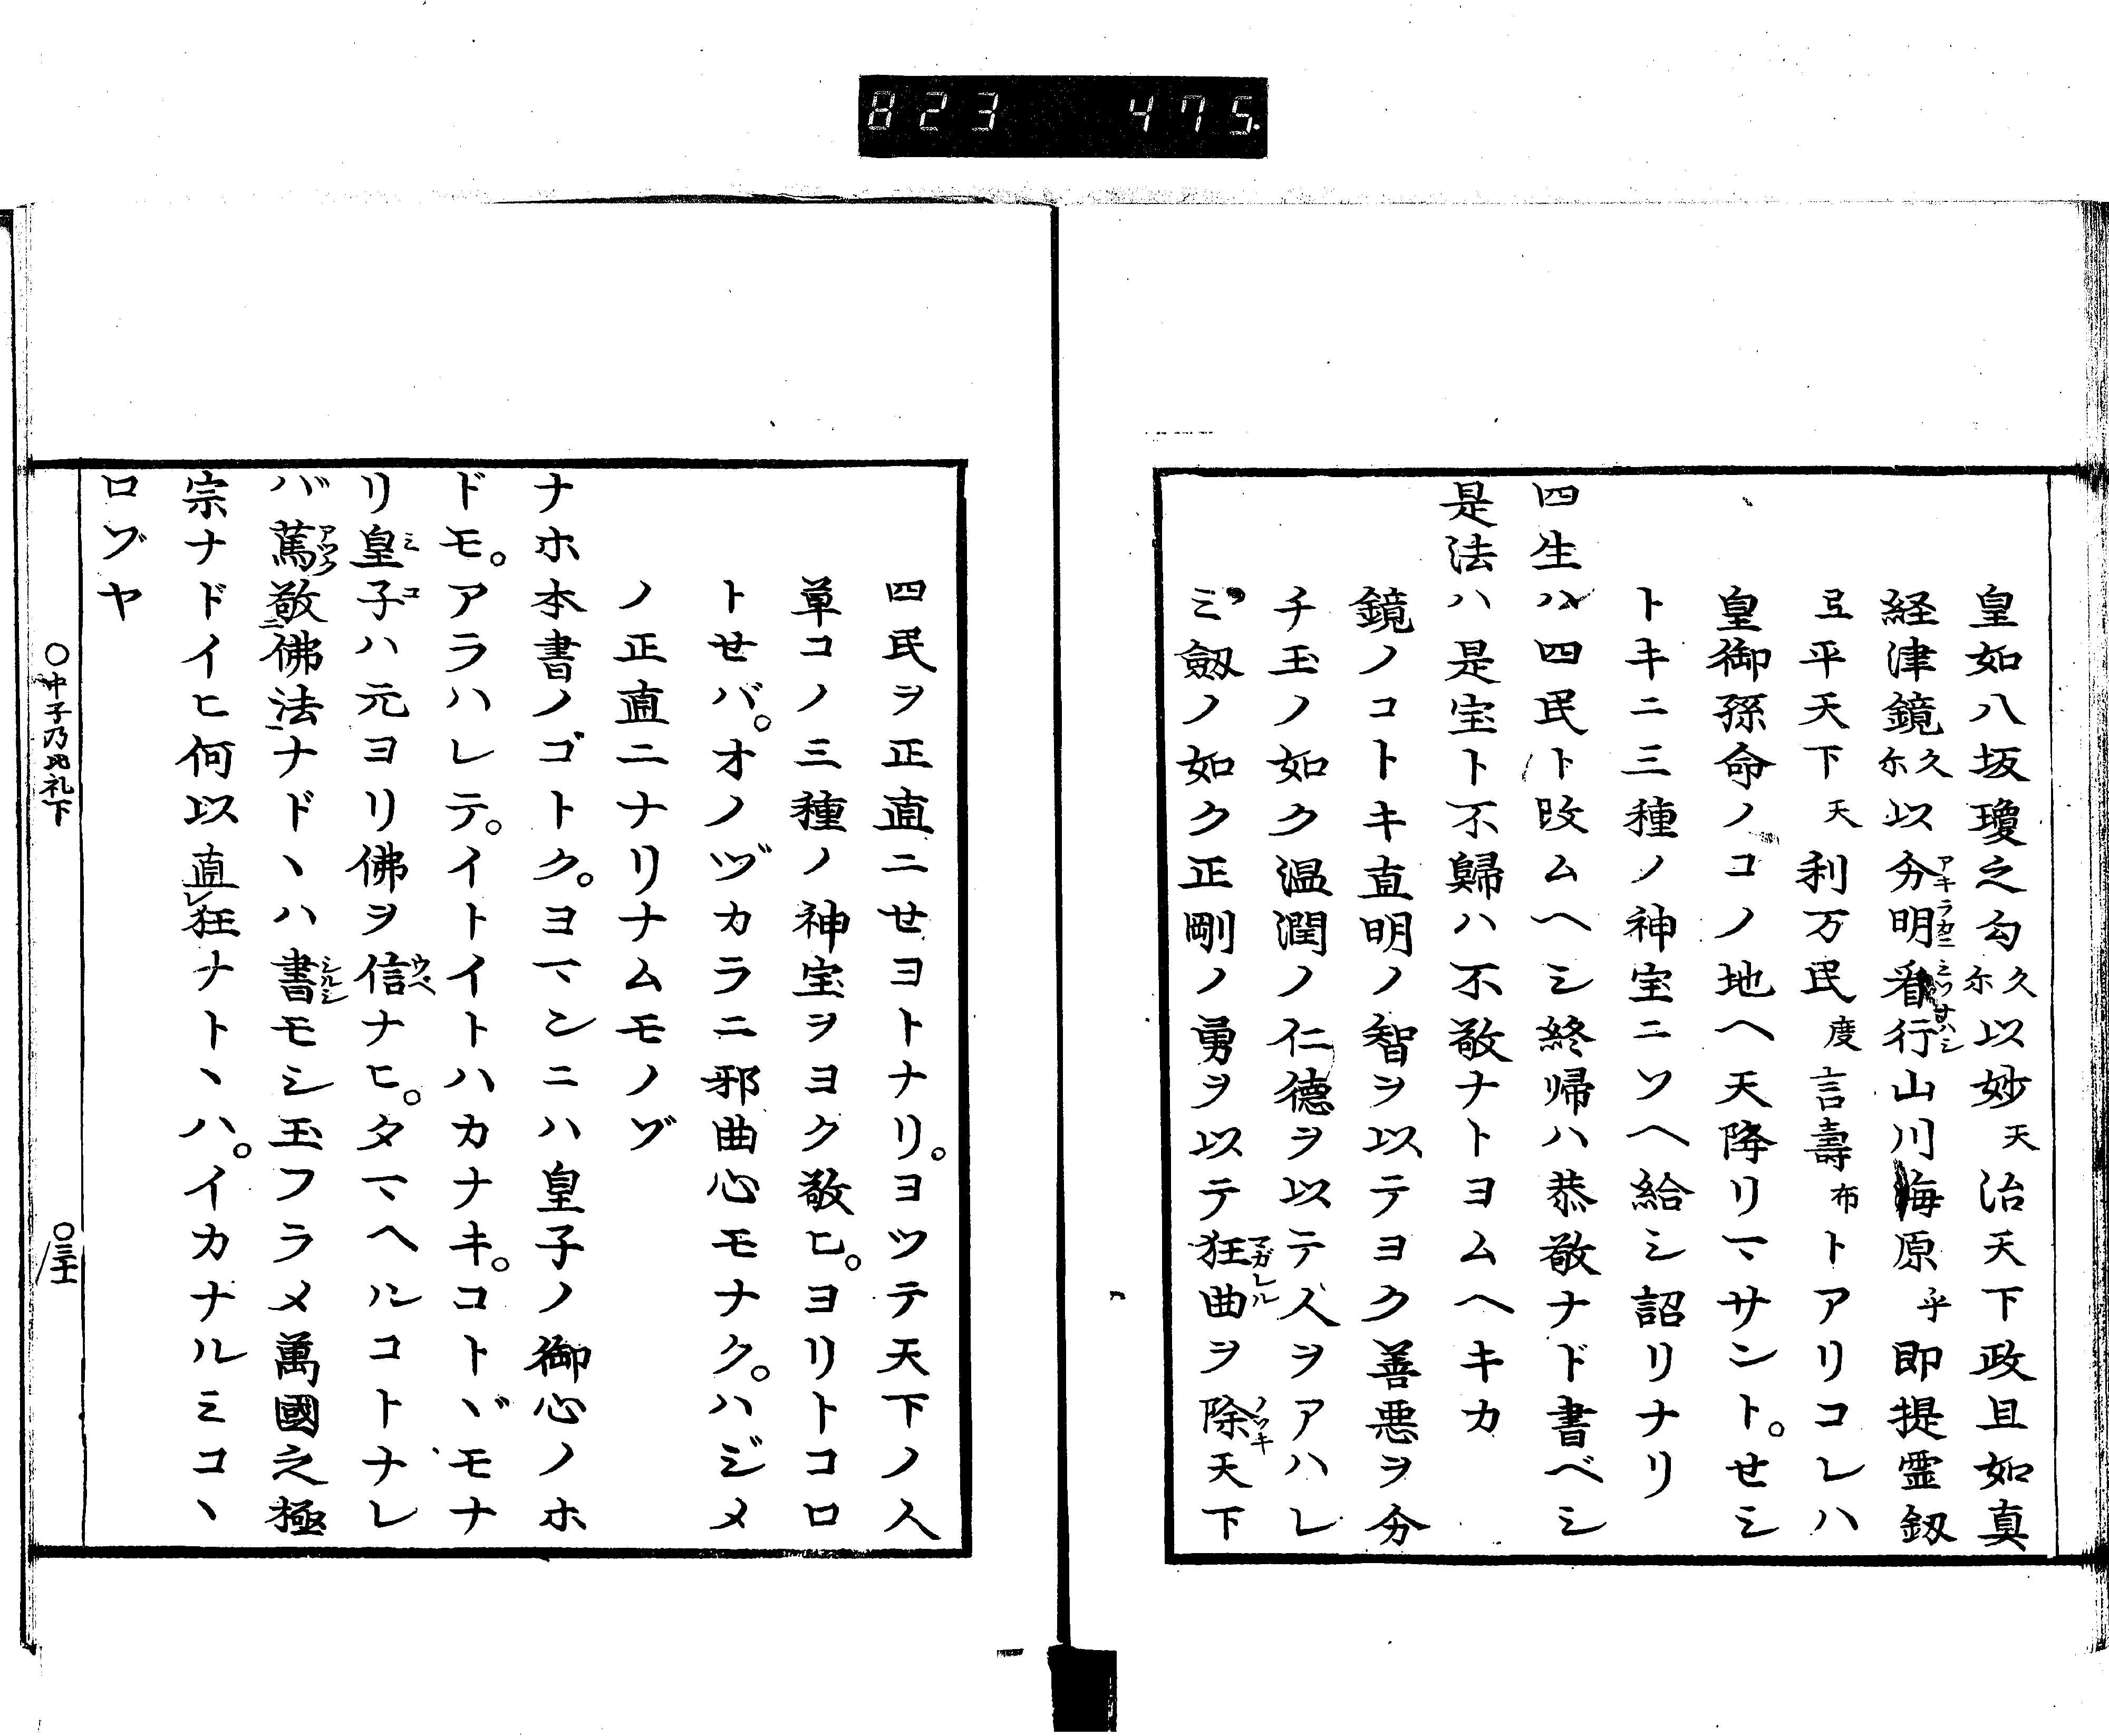 823 475.
皇如八坂瓊之勾久尓以妙天治天下政且如真
経津鏡久尓以分明アキラカニ看行ミソナハシ山川海原乎即提霊釼
弖平天下天利万民度言壽布トアリコレハ
皇御孫命ノコノ地ヘ天降リマサント。せシ
トキニ三種ノ神宝ニソヘ給シ詔リナリ
四生ハ四民ト改ムヘシ終帰ハ恭敬ナド書ベシ
是法ハ是宝ト不歸ハ不敬ナトヨムヘキカ
鏡ノコトキ直明ノ智ヲ以テヨク善悪ヲ分
チ玉ノ如ク温潤ノ仁德ヲ以テ人ヲアハレ
ミ劔ノ如ク正剛ノ勇ヲ以テ狂曲マガレルヲ除ノゾキ天下
四民ヲ正直ニせヨトナリ。ヨツテ天下ノ人
草コノ三種ノ神宝ヲヨク敬ヒ。ヨリトコロ
トせバ。オノヅカラニ邪曲心モナク。ハジメ
ノ正直ニナリナムモノゾ
ナホ本書ノゴトク。ヨマンニハ皇子ノ御心ノホ
ドモ。アラハレテ。イトイトハカナキ。コトヾモナ
リ皇子ミコハ元ヨリ佛ヲ信ウベナヒ。タマヘルコトナレ
バ篤アツク敬ニ佛法一ナドヽハ書シルシモシ玉フラメ萬國之極
宗ナドイヒ何以直レ狂ナトヽハ。イカナルミコヽ
ロゾヤ
○中子乃比礼下
○三十